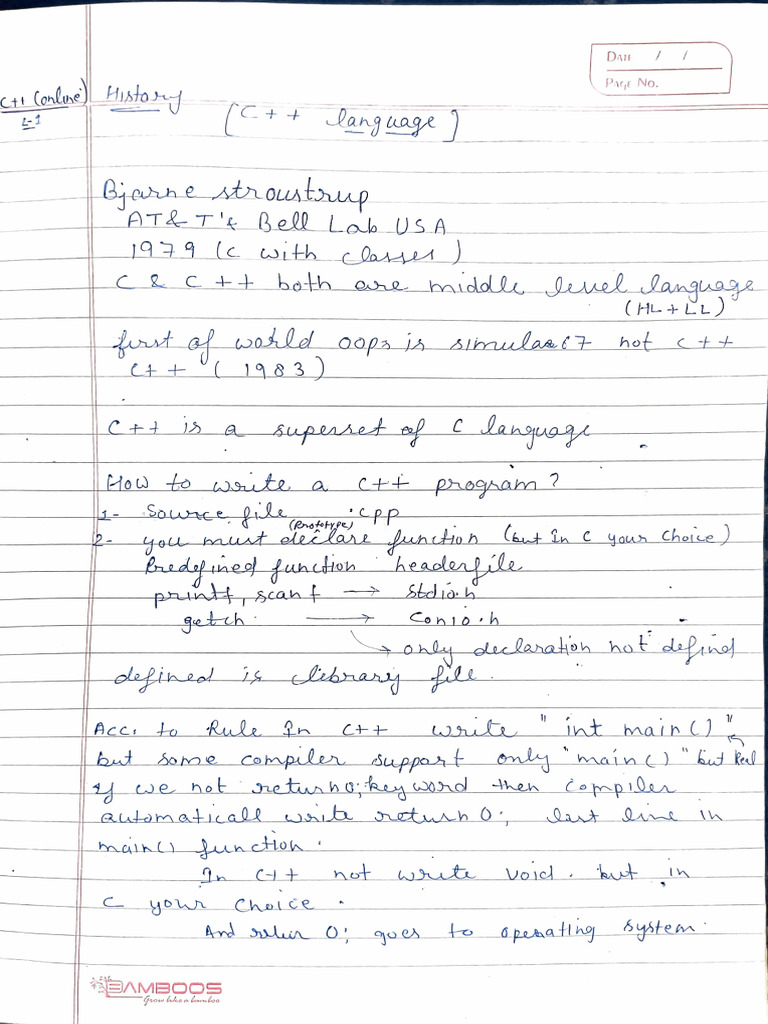 DATE / /
PAGE NO.
C++ (online) History
L-1
[C++ language]
Bjarne stroustrup
AT&T's Bell Lab USA
1979 (C with classes)
C & C++ both are middle level language
(HL + LL)
first of world oops is simula 67 not C++
C++ (1983)
C++ is a superset of C language
How to write a C++ program?
1- Source file .cpp
(Prototype)
2- you must declare function (but In C your choice)
Predefined function headerfile
printf, scanf → stdio.h
getch → conio.h
→ only declaration not defind
defined is library file.
Acc. to Rule In C++ write "int main()"
but some compiler support only "main()" but Real
If we not return 0; keyword then compiler
automaticall write return 0; last line in
main() function.
In C++ not write void. but in
C your choice.
And retur 0; goes to operating system.
BAMBOOS
Grow like a bamboo